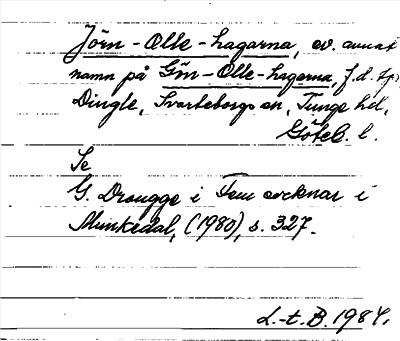 Jörn-Olle-hagarna, ev. annat
namn på Gön-Olle-hagarna, f.d. tp,
Dingle, Svarteborgs sn, Tunge hd,
Göteb. l.
Se
G. Drougge i Fem socknar i
Munkedal, (1980), s. 327.
L.-t. B. 1984.